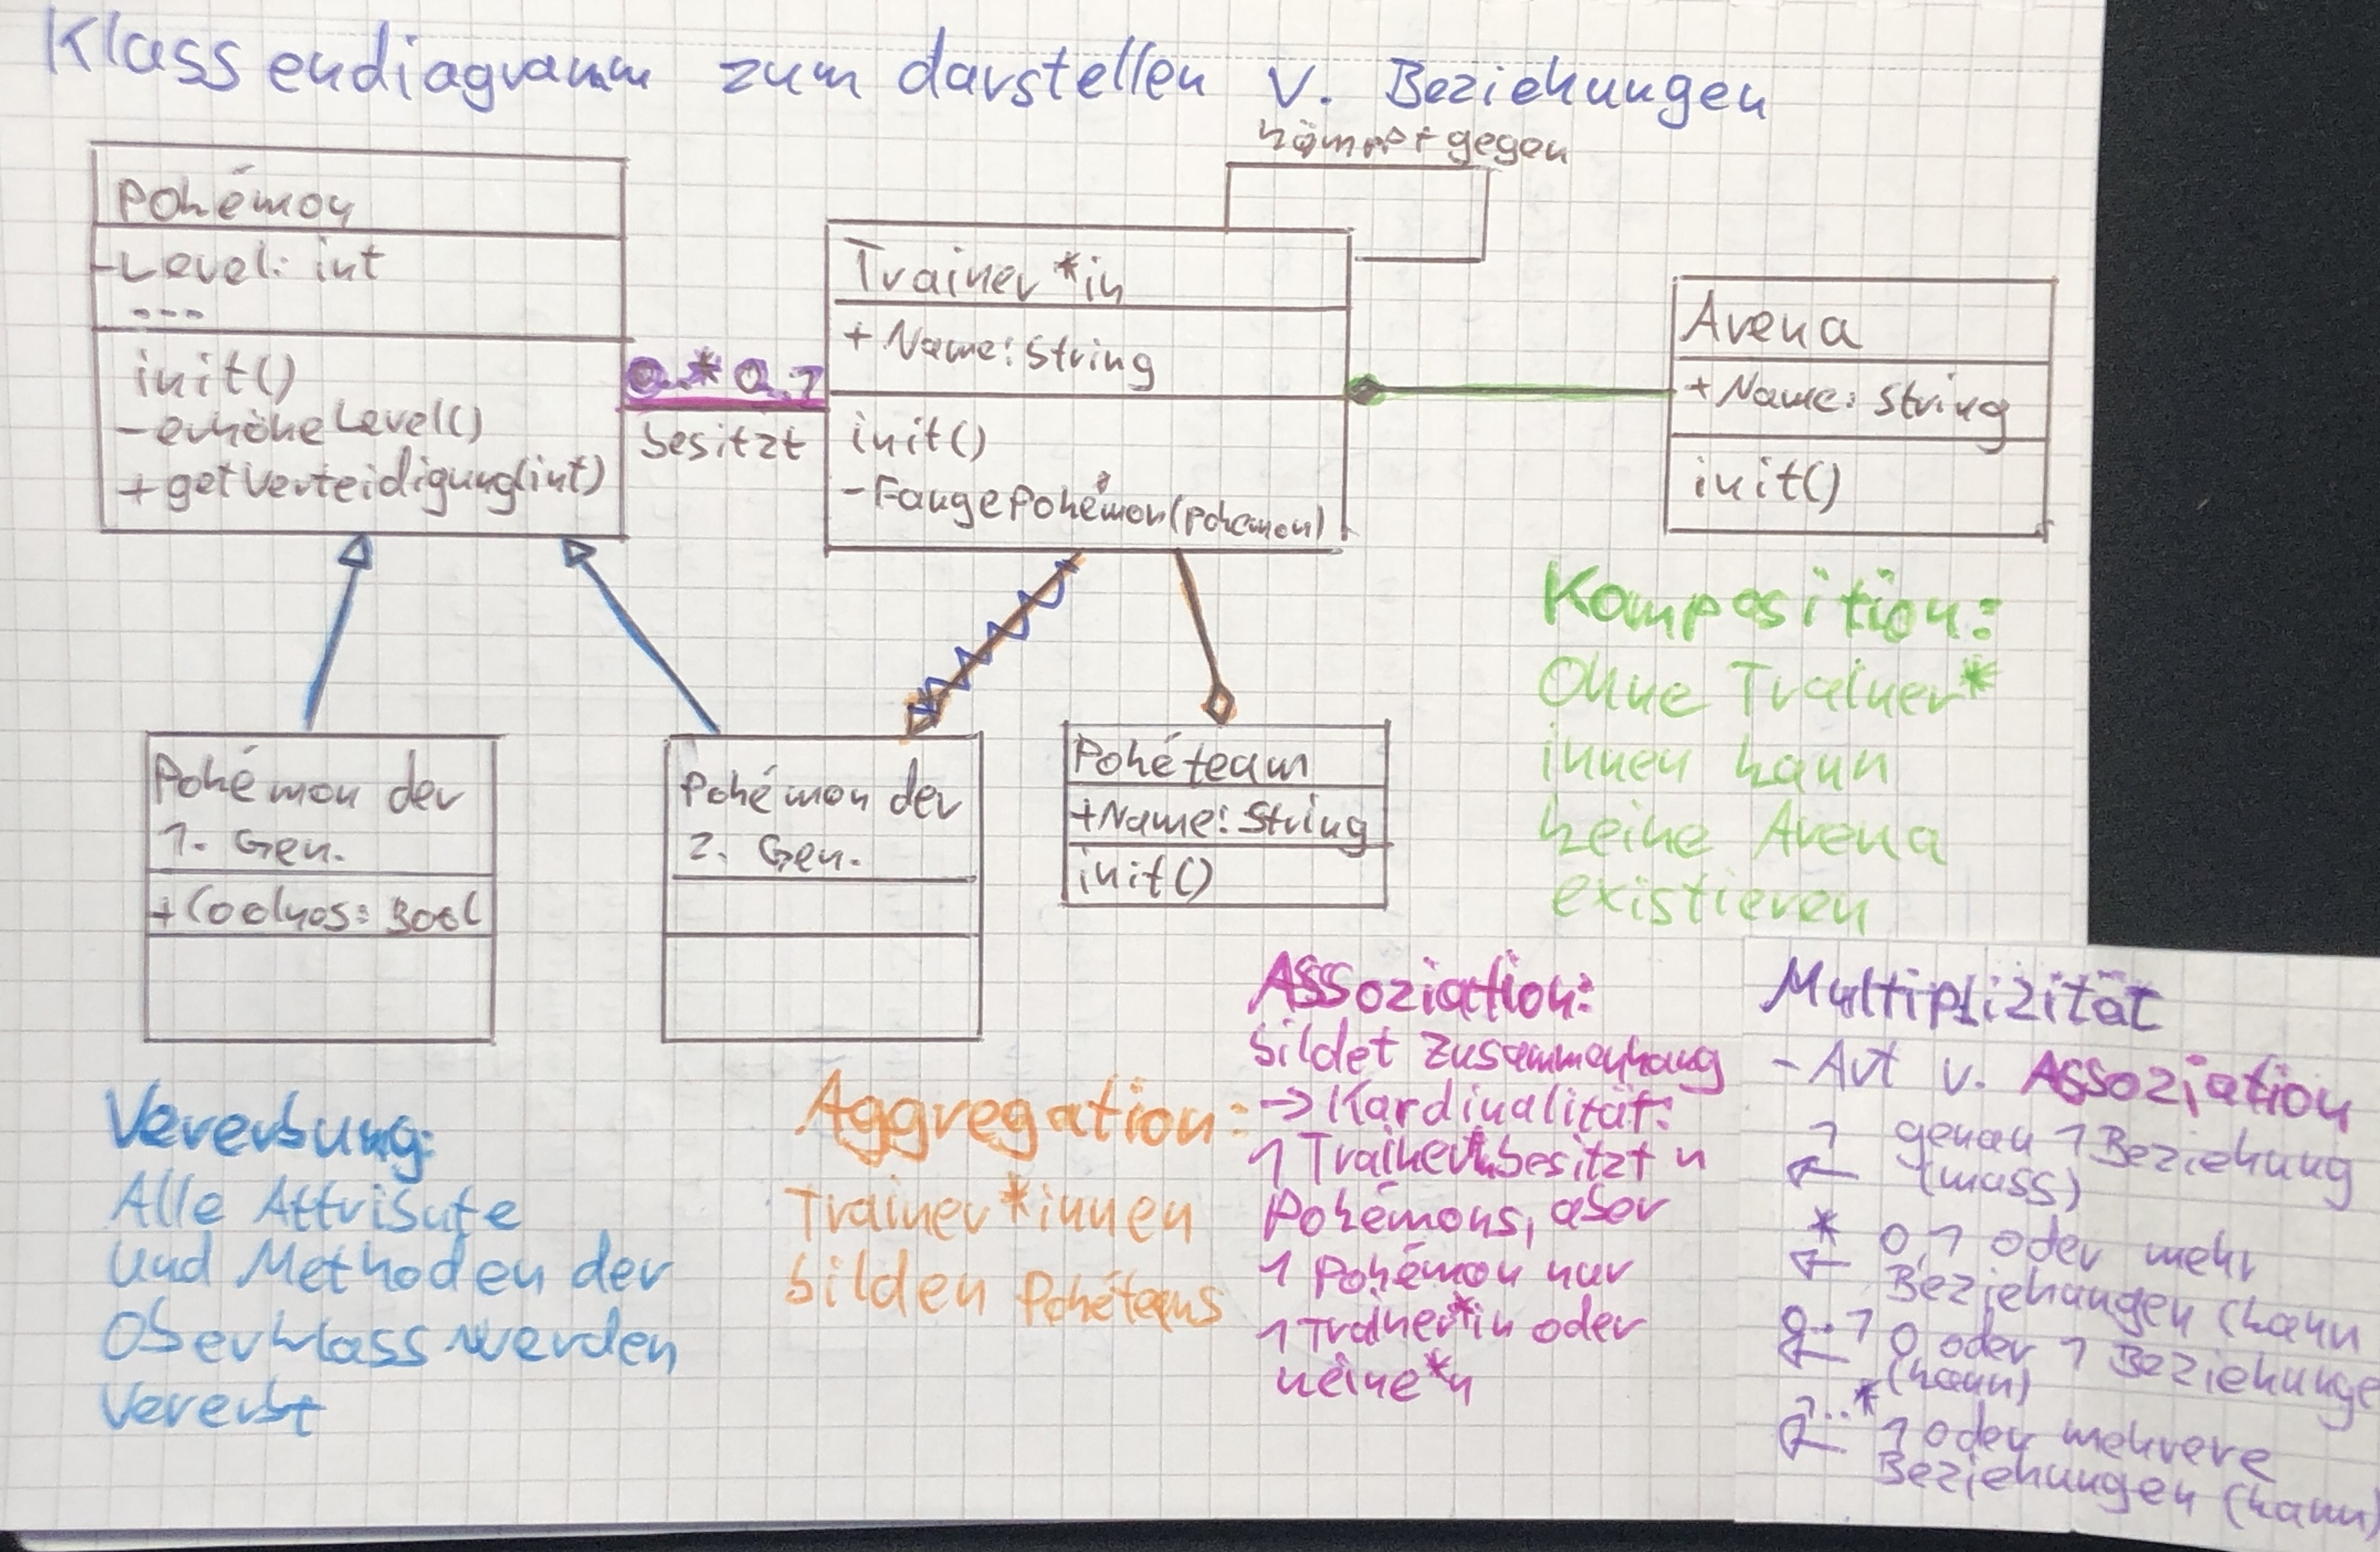 Klassendiagramm zum darstellen v. Beziehungen
kämpft gegen
Pokémon
-Level: int
---
init()
-erhöheLevel()
+getVerteidigung(int)
0..* 0..1
besitzt
Trainer*in
+ Name: String
init()
-FangePokémon(pokemon)
Arena
+ Name: String
init()
Pokémon der
1. Gen.
+Coolnos: Bool
Pokémon der
2. Gen.
Pokéteam
+Name: String
init()
Komposition:
Ohne Trainer*
innen kann
keine Arena
existieren
Vererbung:
Alle Attribute
und Methoden der
Oberklass werden
Vererbt
Aggregation:
Trainer*innen
bilden Pokéteams
Assoziation:
bildet Zusammenhang
-> Kardinalität:
1 Trainer besitzt n
Pokémons, aber
1 Pokémon nur
1 Trainer*in oder
keine*n
Multiplizität
- Art v. Assoziation
1 genau 1 Beziehung
(muss)
* 0,1 oder mehr
Beziehungen (kann
0..1 0 oder 1 Beziehunge
(kann)
1..* 1 oder mehrere
Beziehungen (kann)